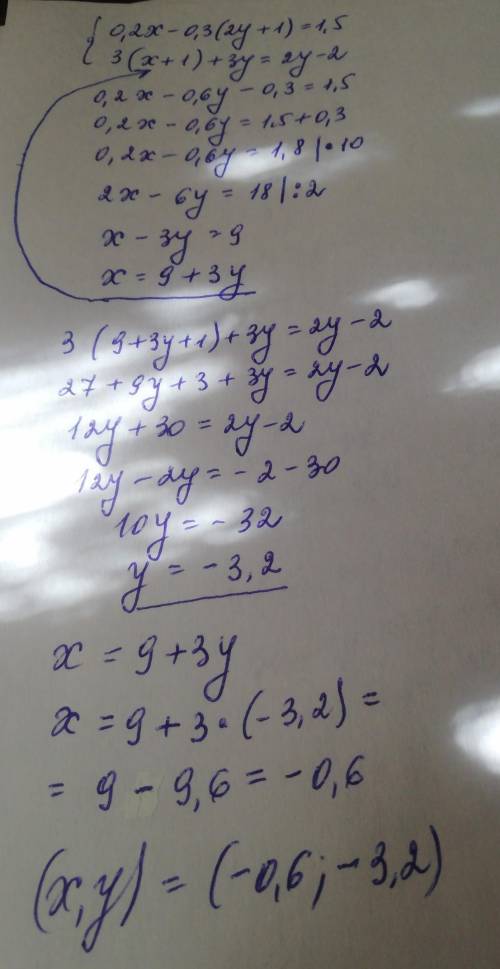 { 0,2x - 0,3(2y+1) = 1,5
3(x+1) + 3y = 2y - 2
0,2x - 0,6y - 0,3 = 1,5
0,2x - 0,6y = 1.5 + 0,3
0,2x - 0,6y = 1,8 | • 10
2x - 6y = 18 | : 2
x - 3y = 9
x = 9 + 3y
3 (9+3y+1) + 3y = 2y - 2
27 + 9y + 3 + 3y = 2y - 2
12y + 30 = 2y - 2
12y - 2y = - 2 - 30
10y = - 32
y = - 3,2
x = 9 + 3y
x = 9 + 3 • (- 3,2) =
= 9 - 9,6 = - 0,6
(x,y) = (-0,6; -3,2)